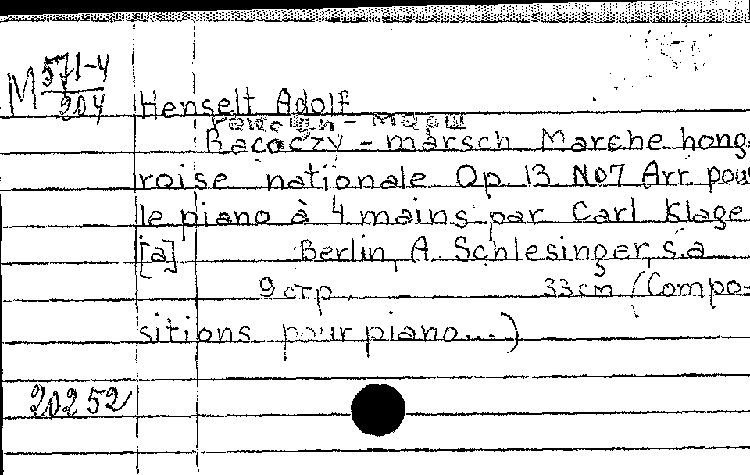 M 571-4
204
Henselt Adolf
Ракочи - Марш
Racoczy - marsch Marche hong-
roise nationale Op. 13 No7 Arr. pour
le piano à 4 mains par Carl Klage
[a] Berlin, A. Schlesinger, s.a
9 стр. 33 cm (Compo-
sitions pour piano...)
20252